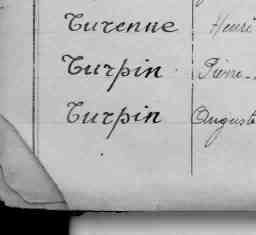 Turenne Henri
Turpin Pierre
Turpin Auguste